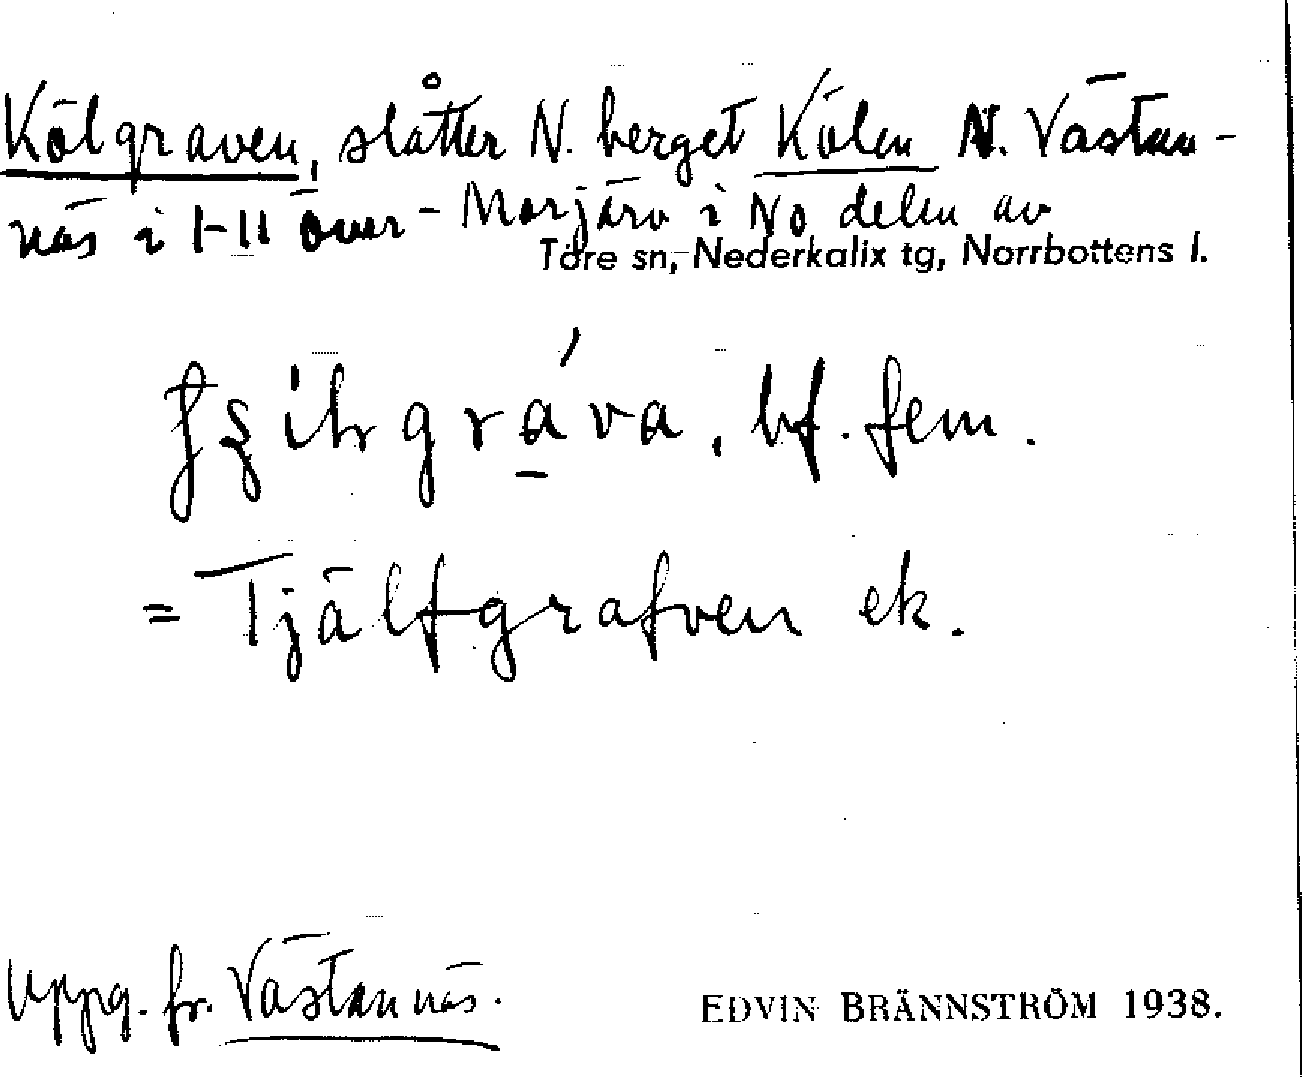 Kölgraven, slåtter N. berget Kölen N. Västan-
näs i 1-11 Över-Morjärv i NO delen av
Töre sn, Nederkalix tg, Norrbottens l.
gráva, bf. fem.
= Tjälfgrafven ek.
Uppg. fr. Västannäs.
EDVIN BRÄNNSTRÖM 1938.